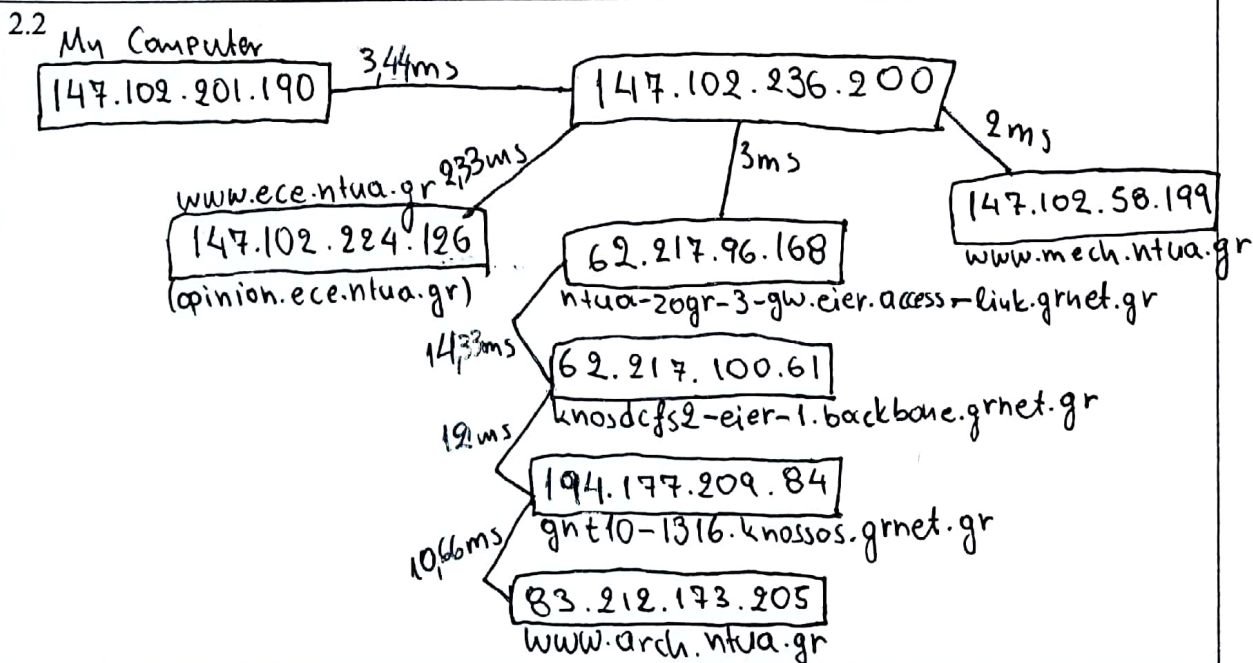 2.2
My Computer
147.102.201.190
3,44ms
147.102.236.200
2,33ms
3ms
2ms
www.ece.ntua.gr
147.102.224.126
(opinion.ece.ntua.gr)
62.217.96.168
ntua-zogr-3-gw.eier.access-link.grnet.gr
147.102.58.199
www.mech.ntua.gr
14,33ms
62.217.100.61
knosdcfs2-eier-1.backbone.grnet.gr
12ms
194.177.209.84
gnt10-1316.knossos.grnet.gr
10,66ms
83.212.173.205
www.arch.ntua.gr